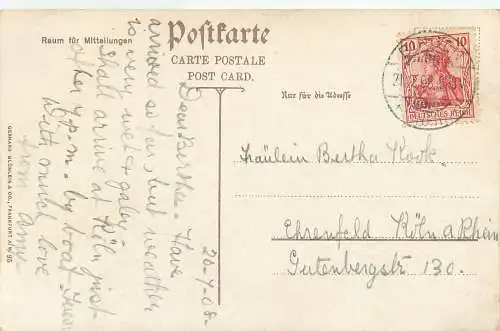 Raum für Mitteilungen
Postkarte
CARTE POSTALE
POST CARD.
Nur für die Adresse
10 10
DEUTSCHES REICH
20-7-08-
Dear Bertha. Have
arrived so far, but weather
is very wet & galey-
Shall arrive at Köln just
after 7 p.m. by boat
With much love
from Amy-
Fräulein Bertha Kook.
Ehrenfeld Köln a Rhein
Gutenbergstr 130.
FRANKFURT A/M